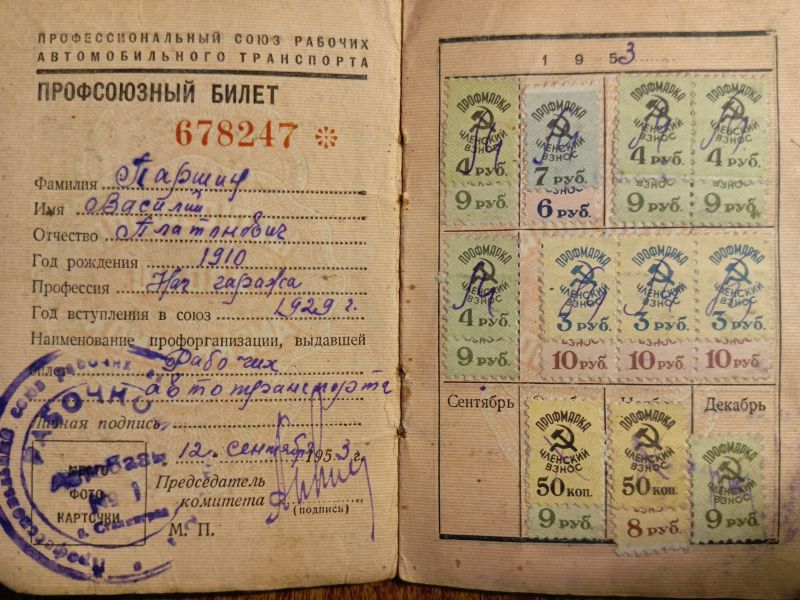 ПРОФЕССИОНАЛЬНЫЙ СОЮЗ РАБОЧИХ
АВТОМОБИЛЬНОГО ТРАНСПОРТА
ПРОФСОЮЗНЫЙ БИЛЕТ
678247
Фамилия Паршин
Имя Василий
Отчество Платонович
Год рождения 1910
Профессия Нач гаража
Год вступления в союз 1929 г.
Наименование профорганизации, выдавшей
билет Рабочих
автотранспорта
Личная подпись
"12" сентября 1953 г.
Председатель
комитета
(подпись)
М. П.
МЕСТО
ФОТО
КАРТОЧКИ
РАБОЧКО
Автобаза
№ 1
1953
ПРОФМАРКА ЧЛЕНСКИЙ ВЗНОС 4 РУБ.
9 РУБ.
ПРОФМАРКА ЧЛЕНСКИЙ ВЗНОС 7 РУБ.
6 РУБ.
ПРОФМАРКА ЧЛЕНСКИЙ ВЗНОС 4 РУБ.
ВЗНОС 9 РУБ.
ПРОФМАРКА ЧЛЕНСКИЙ ВЗНОС 4 РУБ.
ВЗНОС 9 РУБ.
ПРОФМАРКА ЧЛЕНСКИЙ ВЗНОС 4 РУБ.
9 РУБ.
ПРОФМАРКА ЧЛЕНСКИЙ ВЗНОС 3 РУБ.
10 РУБ.
ПРОФМАРКА ЧЛЕНСКИЙ ВЗНОС 3 РУБ.
10 РУБ.
ПРОФМАРКА ЧЛЕНСКИЙ ВЗНОС 3 РУБ.
10 РУБ.
Сентябрь
Декабрь
ПРОФМАРКА ЧЛЕНСКИЙ ВЗНОС 50 КОП.
9 РУБ.
ПРОФМАРКА ЧЛЕНСКИЙ ВЗНОС 50 КОП.
8 РУБ.
ПРОФМАРКА ЧЛЕНСКИЙ ВЗНОС 9 РУБ.